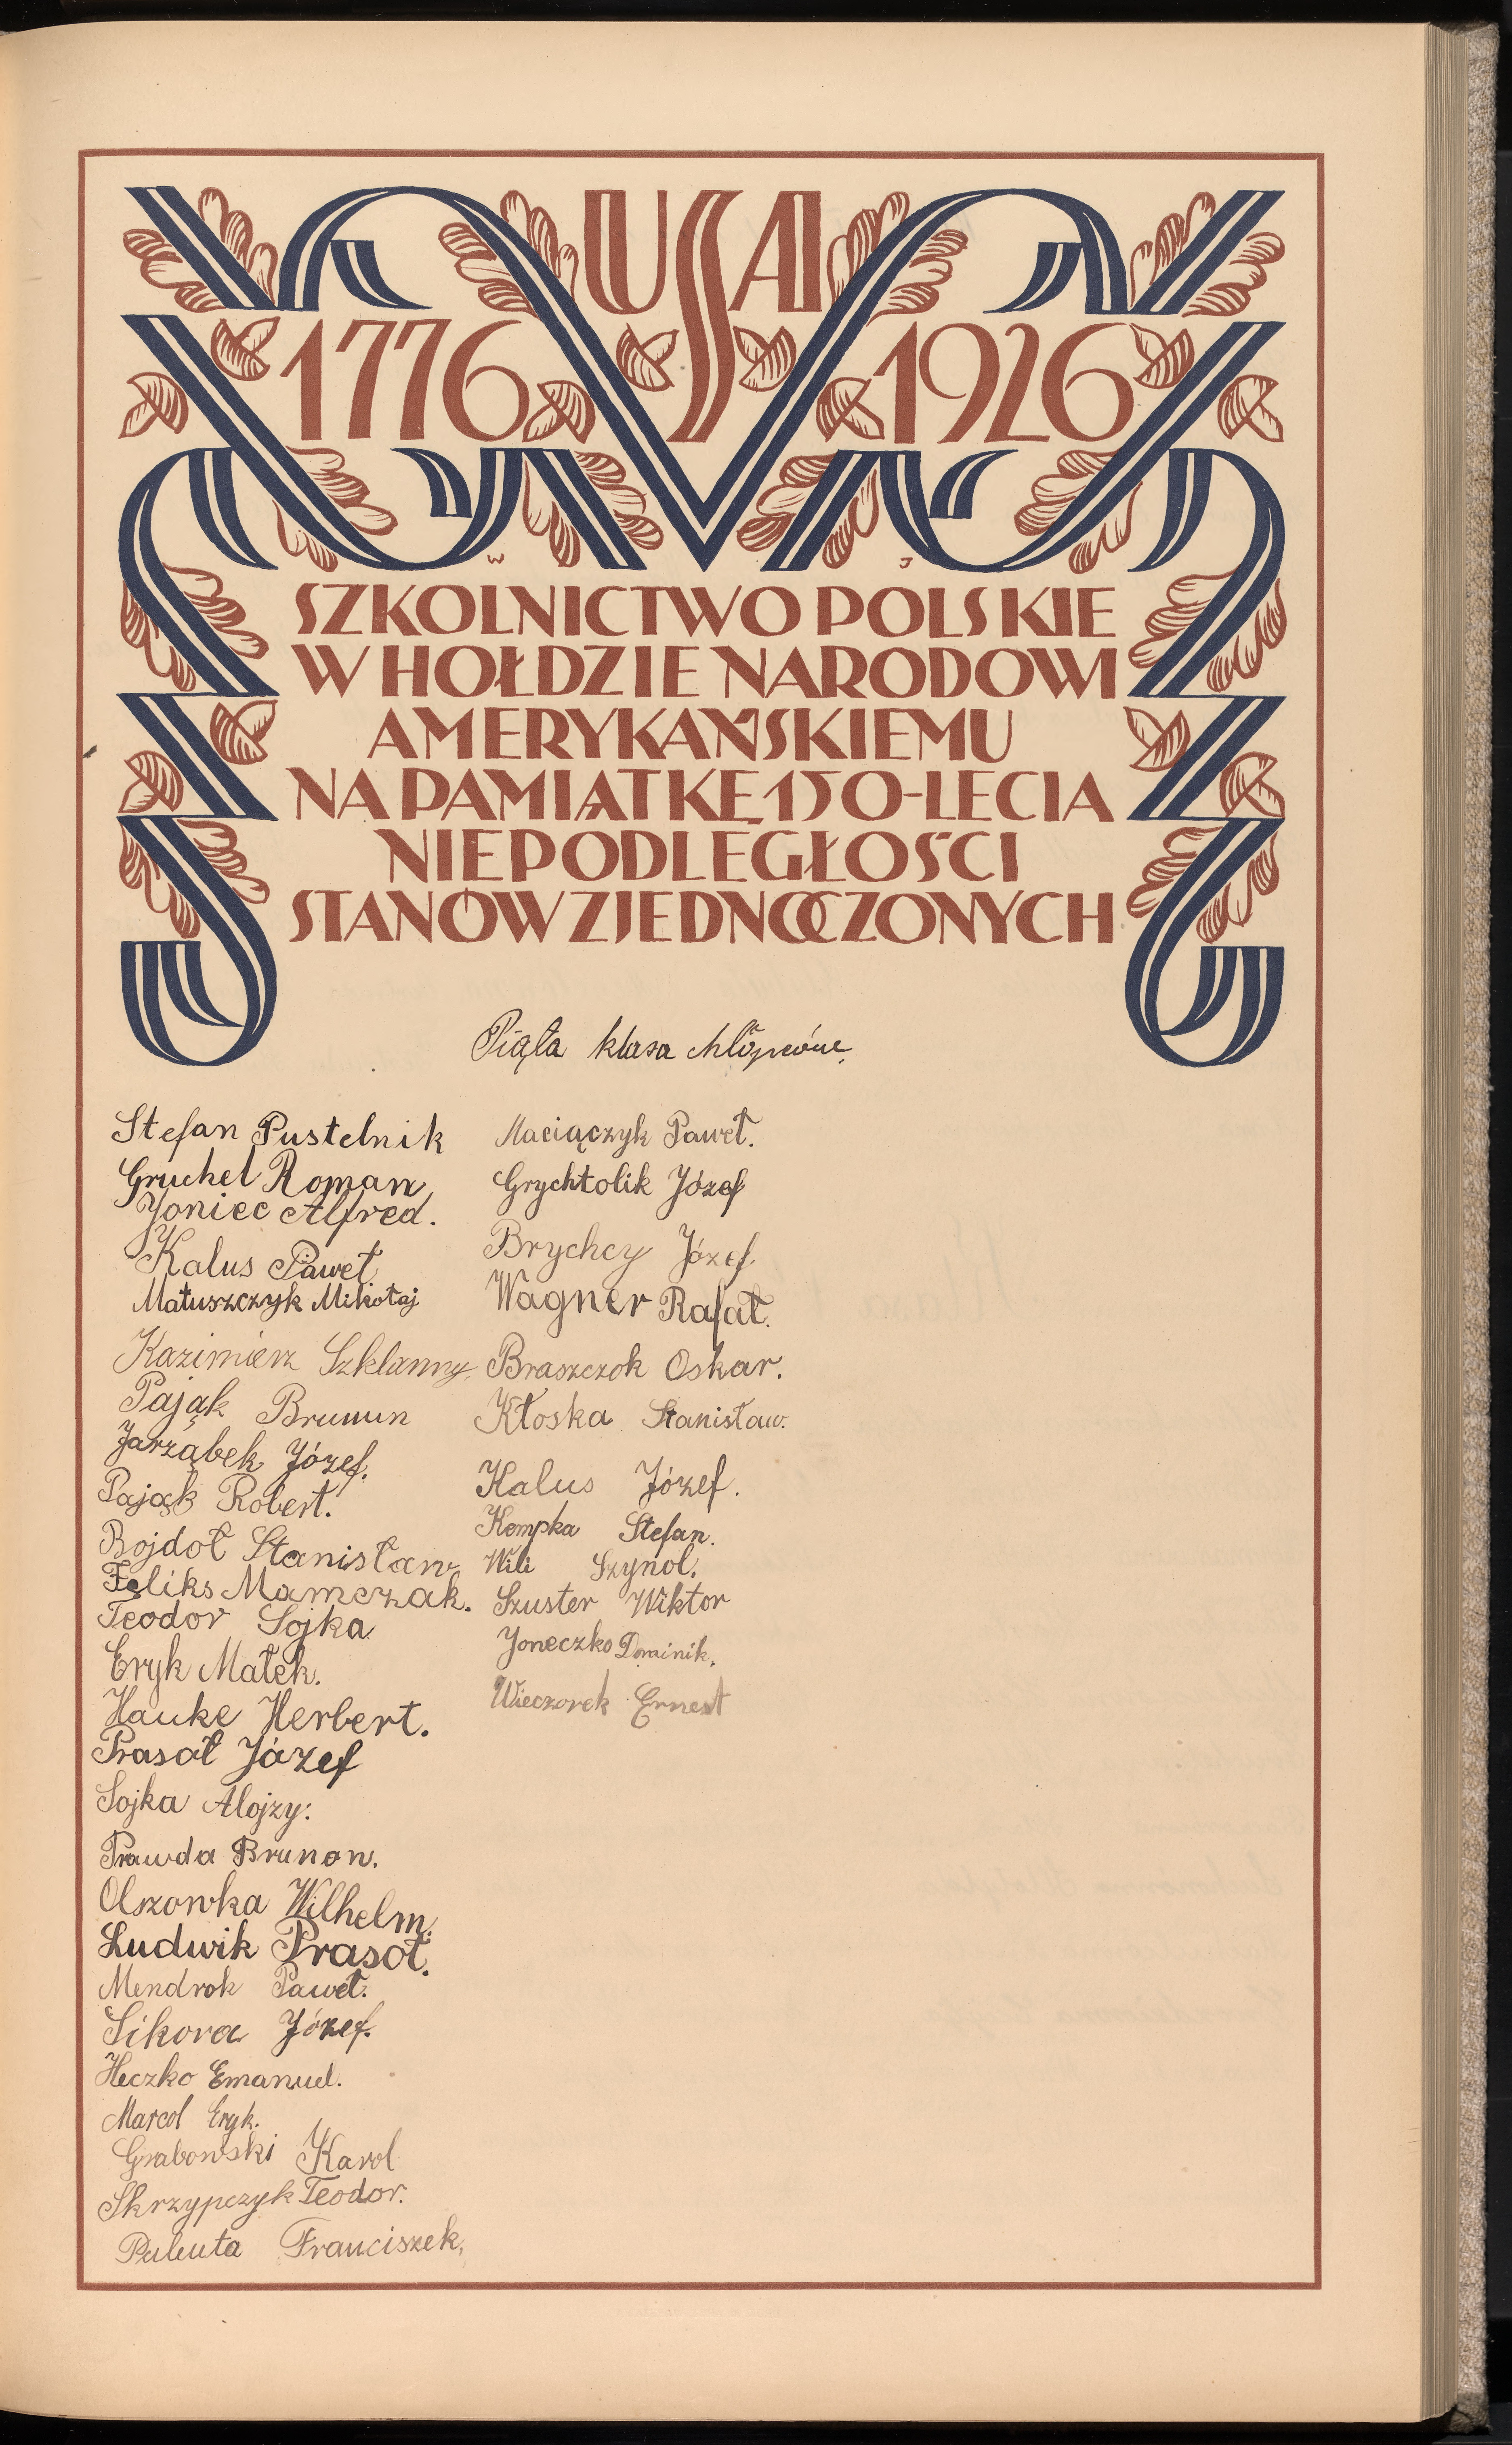 USA
1776 1926
W J
SZKOLNICTWO POLSKIE
W HOŁDZIE NARODOWI
AMERYKAŃSKIEMU
NA PAMIĄTKĘ 150-LECIA
NIEPODLEGŁOŚCI
STANÓW ZJEDNOCZONYCH
Piąta klasa chłopców.
Stefan Pustelnik
Gruchel Roman
Joniec Alfred.
Kalus Paweł
Matuszczyk Mikołaj
Kazimierz Szklanny.
Pająk Brunun
Jarząbek Józef.
Pająk Robert.
Bojdoł Stanisław
Feliks Mamczak.
Teodor Sojka
Eryk Małek.
Hauke Herbert.
Prasoł Józef
Sojka Alojzy.
Prawda Brunon.
Olszowka Wilhelm.
Ludwik Prasoł.
Mendrok Paweł.
Sikora Józef.
Heczko Emanuel.
Marcol Eryk.
Grabowski Karol
Skrzypczyk Teodor.
Franciszek.
Maciączyk Paweł.
Grychtolik Józef
Brychcy Józef
Wagner Rafał.
Braszczok Oskar.
Kłoska Stanisław.
Kalus Józef.
Kempka Stefan.
Wili Szynol.
Szuster Wiktor
Joneczko Dominik.
Wieczorek Ernest